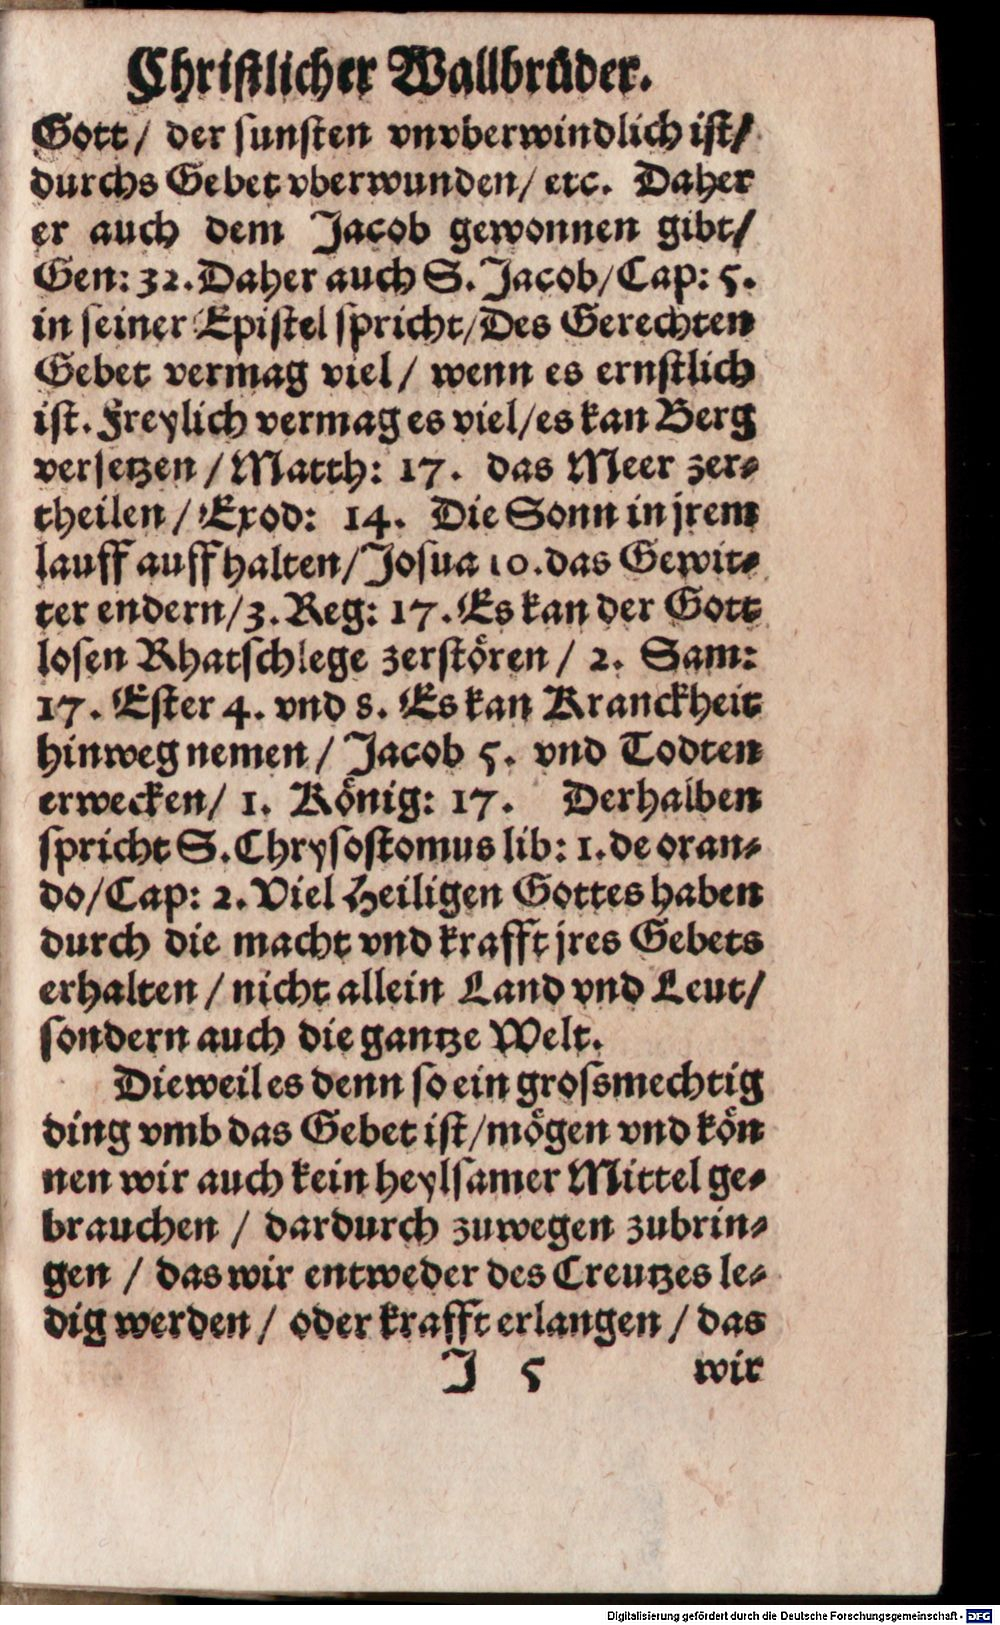 Christlicher Wallbrüder.
Gott/ der sunsten vnvberwindlich ist/
durchs Gebet vberwunden/ etc. Daher
er auch dem Jacob gewonnen gibt/
Gen: 32. Daher auch S. Jacob/ Cap: 5.
in seiner Epistel spricht/ Des Gerechten
Gebet vermag viel/ wenn es ernstlich
ist. Freylich vermag es viel/ es kan Berg
versetzen/ Matth: 17. das Meer zer-
theilen/ Exod: 14. Die Sonn in jrem
lauff auffhalten/ Josua 10. das Gewit-
ter endern/ 3. Reg: 17. Es kan der Gott
losen Rhatschlege zerstören/ 2. Sam:
17. Ester 4. vnd 8. Es kan Kranckheit
hinweg nemen/ Jacob 5. vnd Todten
erwecken/ 1. König: 17. Derhalben
spricht S. Chrysostomus lib: 1. de oran-
do/ Cap: 2. Viel Heiligen Gottes haben
durch die macht vnd krafft jres Gebets
erhalten/ nicht allein Land vnd Leut/
sondern auch die gantze Welt.
Dieweil es denn so ein grossmechtig
ding vmb das Gebet ist/ mögen vnd kön
nen wir auch kein heylsamer Mittel ge-
brauchen/ dardurch zuwegen zubrin-
gen/ das wir entweder des Creutzes le-
dig werden/ oder krafft erlangen/ das
J 5 wir
Digitalisierung gefördert durch die Deutsche Forschungsgemeinschaft - DFG